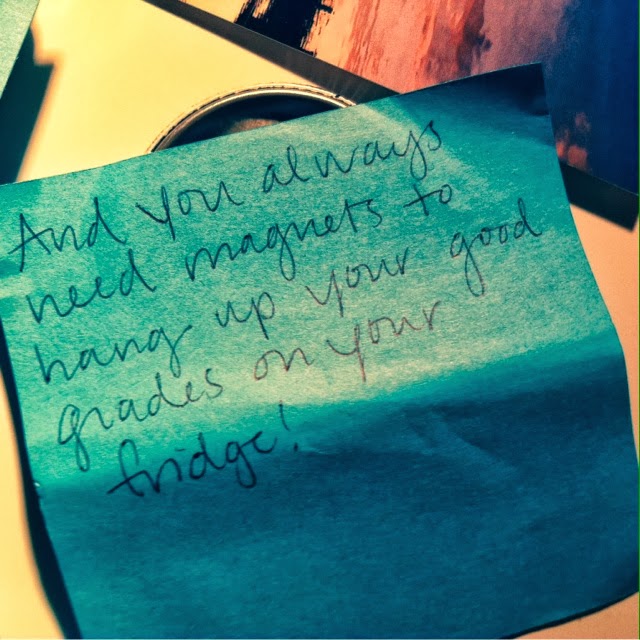 And you always
need magnets to
hang up your good
grades on your
fridge!